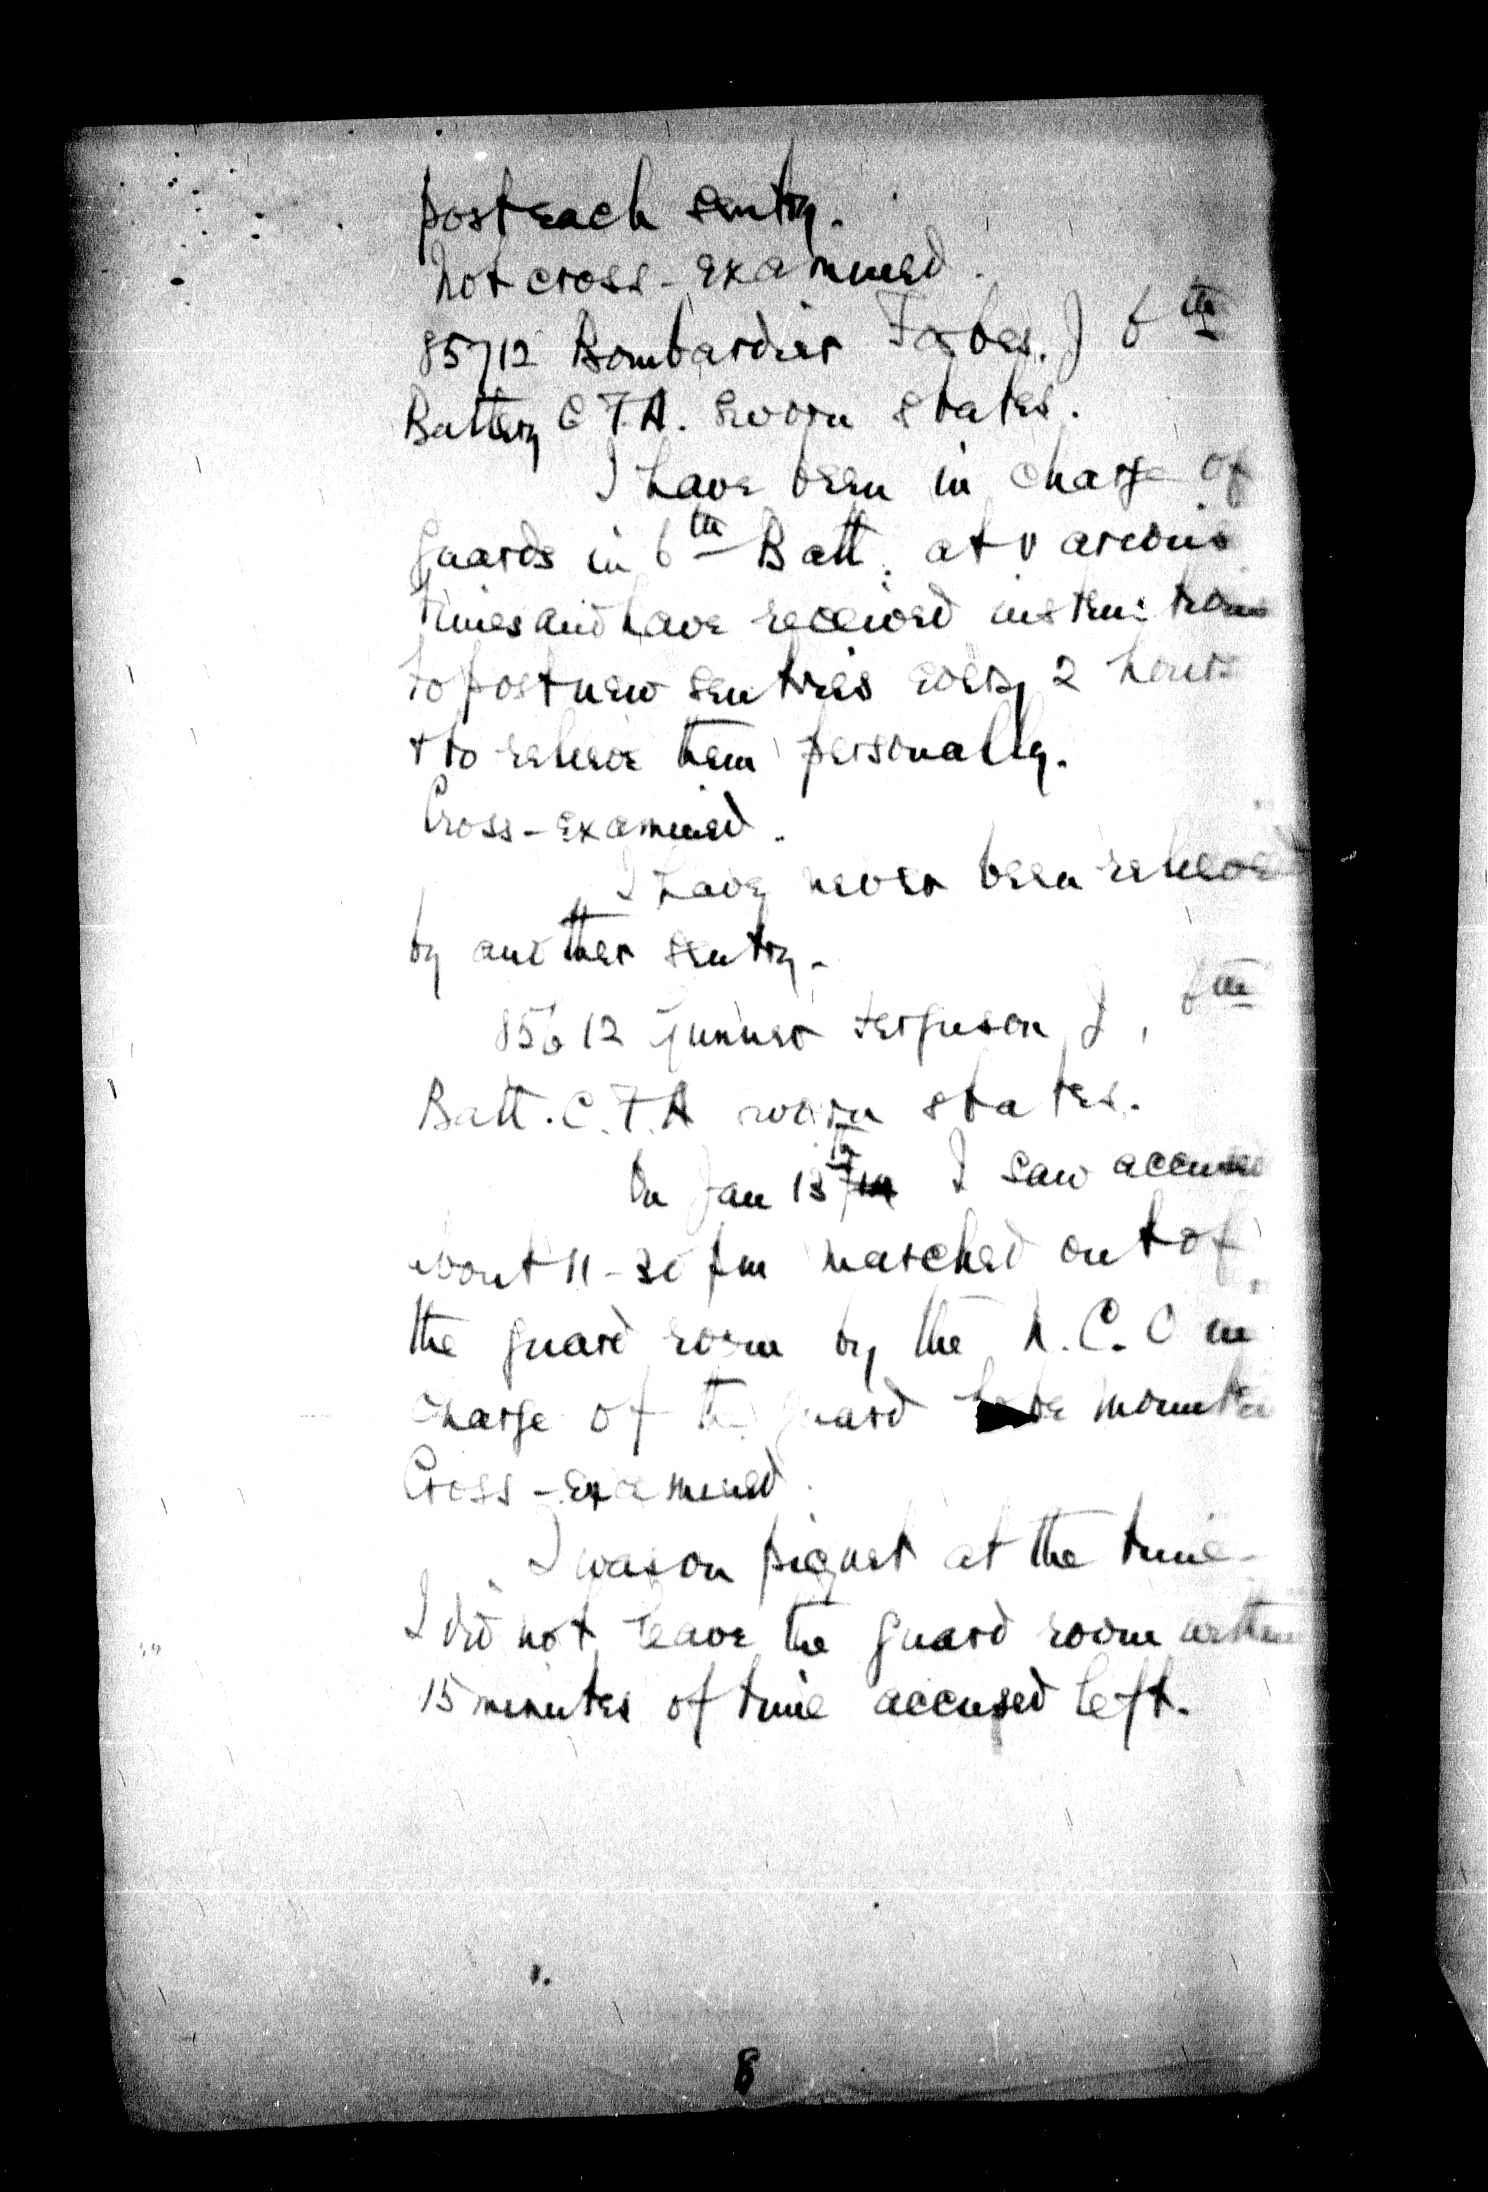 post each sentry.
Not cross-examined.
85712 Bombardier Forbes. J 6th
Battery C F A. sworn states.
I have been in charge of
guards in 6th Batt. at various
times and have received instructions
to post new sentries every 2 hours
+ to relieve them personally.
Cross-examined.
I have never been relieved
by another sentry.
85612 Gunner Ferguson J, 6th
Batt. C.F.A sworn states.
On Jan 13th I saw accused
about 11-30 pm marched out of
the guard room by the N.C.O in
charge of the guard to be mounted
Cross-examined.
I was on piquet at the time.
I did not leave the guard room within
15 minutes of time accused left.
8